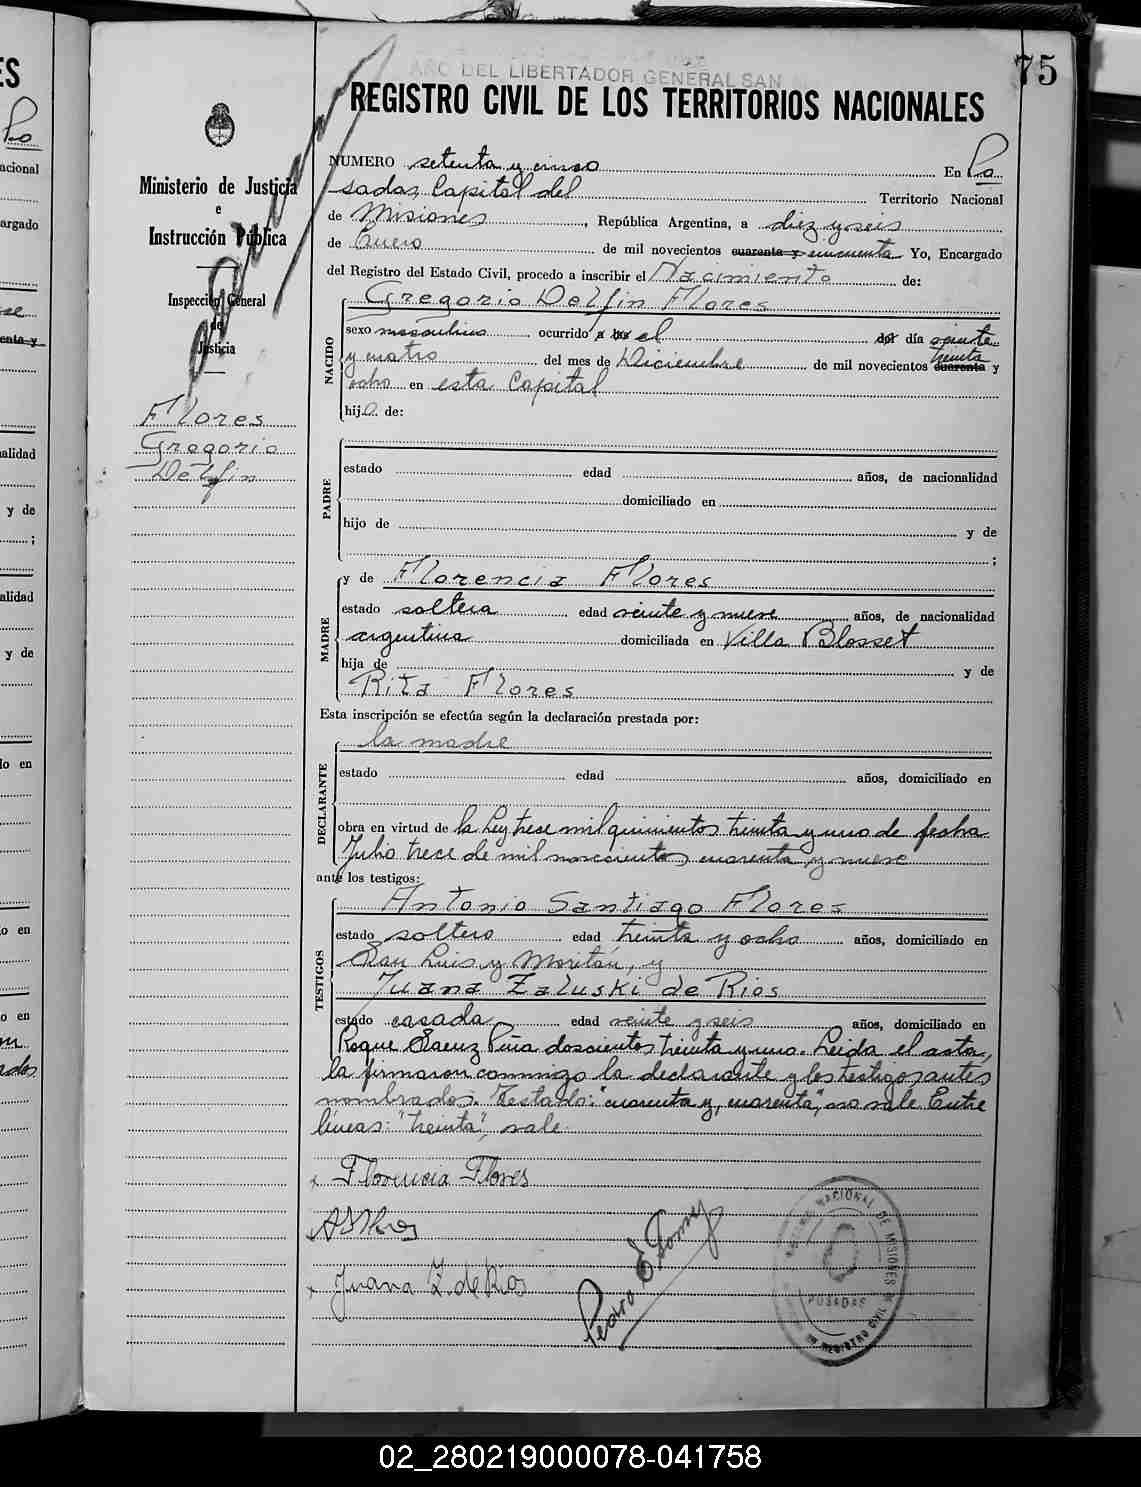 75
AÑO DEL LIBERTADOR GENERAL SAN
REGISTRO CIVIL DE LOS TERRITORIOS NACIONALES
Ministerio de Justicia
e
Instrucción Pública
Inspección General
de
Justicia
Flores
Gregorio
Delfin
NUMERO setenta y cinco En Po
sadas, Capital del Territorio Nacional
de Misiones, República Argentina, a diez y seis
de Enero de mil novecientos cuarenta y cincuenta Yo, Encargado
del Registro del Estado Civil, procedo a inscribir el Nacimiento de:
NACIDO
Gregorio Delfin Flores
sexo masculino ocurrido a las el del día veinte
y cuatro del mes de Diciembre de mil novecientos cuarenta treinta y
ocho en esta Capital
hijo de:
PADRE
estado edad años, de nacionalidad
domiciliado en
hijo de y de
;
MADRE
y de Florencia Flores
estado soltera edad veinte y nueve años, de nacionalidad
argentina domiciliada en Villa Blosset
hija de y de
Rita Flores
Esta inscripción se efectúa según la declaración prestada por:
DECLARANTE
la madre
estado edad años, domiciliado en
obra en virtud de la Ley trece mil quinientos treinta y uno de fecha
Julio trece de mil novecientos cuarenta y nueve
ante los testigos:
TESTIGOS
Antonio Santiago Flores
estado soltero edad treinta y ocho años, domiciliado en
San Luis y Moritán, y
Juana Zaluski de Rios
estado casada edad veinte y seis años, domiciliado en
Roque Saenz Peña doscientos treinta y uno. Leida el acta,
la firmaron conmigo la declarante y los testigos antes
nombrados. Testado: "cuarenta y, cuarenta", no vale. Entre
líneas: "treinta", vale.
Florencia Flores
A S Flores
Juana Z. de Rios
Pedro E
REGISTRO CIVIL
NACIONAL DE MISIONES
POSADAS
02_280219000078-041758